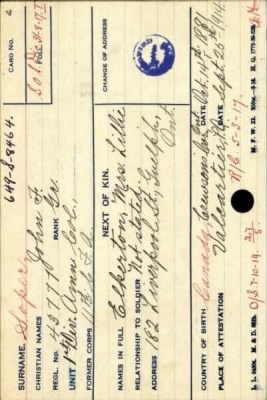 649-S-8464.
CARD NO.
SURNAME. Soper,
CHRISTIAN NAMES John F.
REGL. NO. 43770 RANK Gnr.
UNIT 1st Div. Amn Col.,
FORMER CORPS 11th C.F.A.
NEXT OF KIN. CHANGE OF ADDRESS
NAMES IN FULL Elkerton, Mrs. Lillie
RELATIONSHIP TO SOLDIER Not stated
ADDRESS 182 Liverpool St., Guelph,
Ont.
COUNTRY OF BIRTH Canada, Ont. DATE Oct. 14th 1891
PLACE OF ATTESTATION Valcartier, DATE Sept. 26th 1914
R/C 5-3-17.
O/S 3-10-14